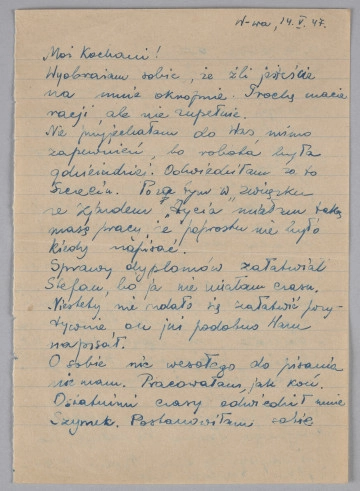 W-wa, 14.V.47.
Moi Kochani!
Wyobrażam sobie, że źli jesteście
na mnie okropnie. Trochę macie
racji ale nie zupełnie.
Nie przyjechałam do Was mimo
zapewnień, bo robota była
gdzieindziej. Odwiedziłam za to
Szczecin. Poza tym w związku
ze zjazdem "Życia" miałam taką
masę pracy, że poprostu nie było
kiedy napisać.
Sprawy dyplomów załatwiał
Stefan, bo ja nie miałam czasu.
Niestety nie udało się załatwić pozy-
tywnie on już podobno Wam
napisał.
O sobie nic wesołego do pisania
nie mam. Pracowałam, jak koń.
Ostatnimi czasy odwiedził mnie
Szymek. Postanowiłam sobie